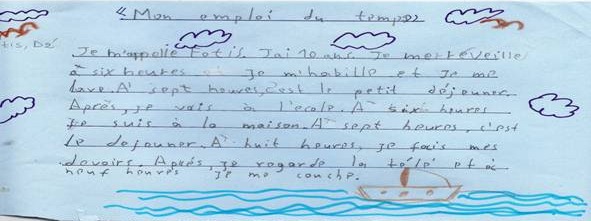 "Mon emploi du temps"
tis, Dé
Je m'appelle Fotis. J'ai 10 ans. Je me réveille
à six heures. Je m'habille et je me
lave. A sept heures, c'est le petit déjeuner.
Après, je vais à l'école. A six heures
je suis à la maison. A sept heures, c'est
le dejouner. A huit heures, je fais mes
devoirs. Après, je regarde la télé et à
neuf heures je me couche.